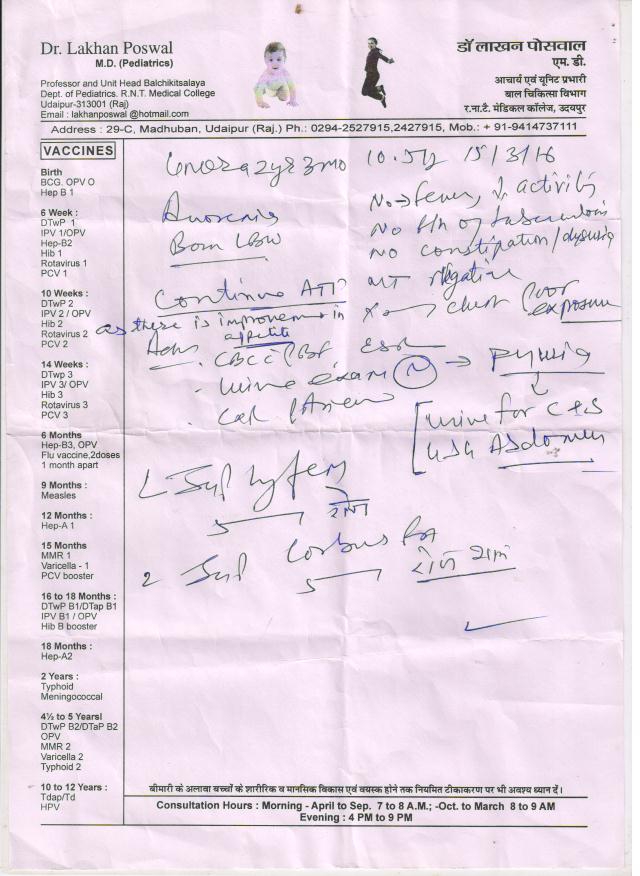 Dr. Lakhan Poswal
M.D. (Pediatrics)
Professor and Unit Head Balchikitsalaya
Dept. of Pediatrics. R.N.T. Medical College
Udaipur-313001 (Raj)
Email : lakhanposwal @hotmail.com
डॉ लाखन पोसवाल
एम. डी.
आचार्य एवं यूनिट प्रभारी
बाल चिकित्सा विभाग
र.ना.टै. मेडिकल कॉलेज, उदयपुर
Address : 29-C, Madhuban, Udaipur (Raj.) Ph.: 0294-2527915,2427915, Mob.: + 91-9414737111
VACCINES
Birth
BCG. OPV O
Hep B 1
6 Week :
DTwP 1
IPV 1/OPV
Hep-B2
Hib 1
Rotavirus 1
PCV 1
10 Weeks :
DTwP 2
IPV 2 / OPV
Hib 2
Rotavirus 2
PCV 2
14 Weeks :
DTwp 3
IPV 3/ OPV
Hib 3
Rotavirus 3
PCV 3
6 Months
Hep-B3, OPV
Flu vaccine,2doses
1 month apart
9 Months :
Measles
12 Months :
Hep-A 1
15 Months
MMR 1
Varicella - 1
PCV booster
16 to 18 Months :
DTwP B1/DTap B1
IPV B1 / OPV
Hib B booster
18 Months :
Hep-A2
2 Years :
Typhoid
Meningococcal
4½ to 5 Yearsl
DTwP B2/DTaP B2
OPV
MMR 2
Varicella 2
Typhoid 2
10 to 12 Years :
Tdap/Td
HPV
2yr 3mo 15/3/16
No fever, ↓ activity
Anorexia
No of tuberculosis
Born LBW
No constipation/dysuria
MT negative
Continue ATT
chest poor exposure
as there is improvement in appetite
Adv
CBC PBF ESR
urine exam → pyuria
urine for C & S
USG Abdomen
1 Syp
5 रोज
2 Syp
5 रोज शाम
बीमारी के अलावा बच्चों के शारीरिक व मानसिक विकास एवं वयस्क होने तक नियमित टीकाकरण पर भी अवश्य ध्यान दें।
Consultation Hours : Morning - April to Sep. 7 to 8 A.M.; -Oct. to March 8 to 9 AM
Evening : 4 PM to 9 PM